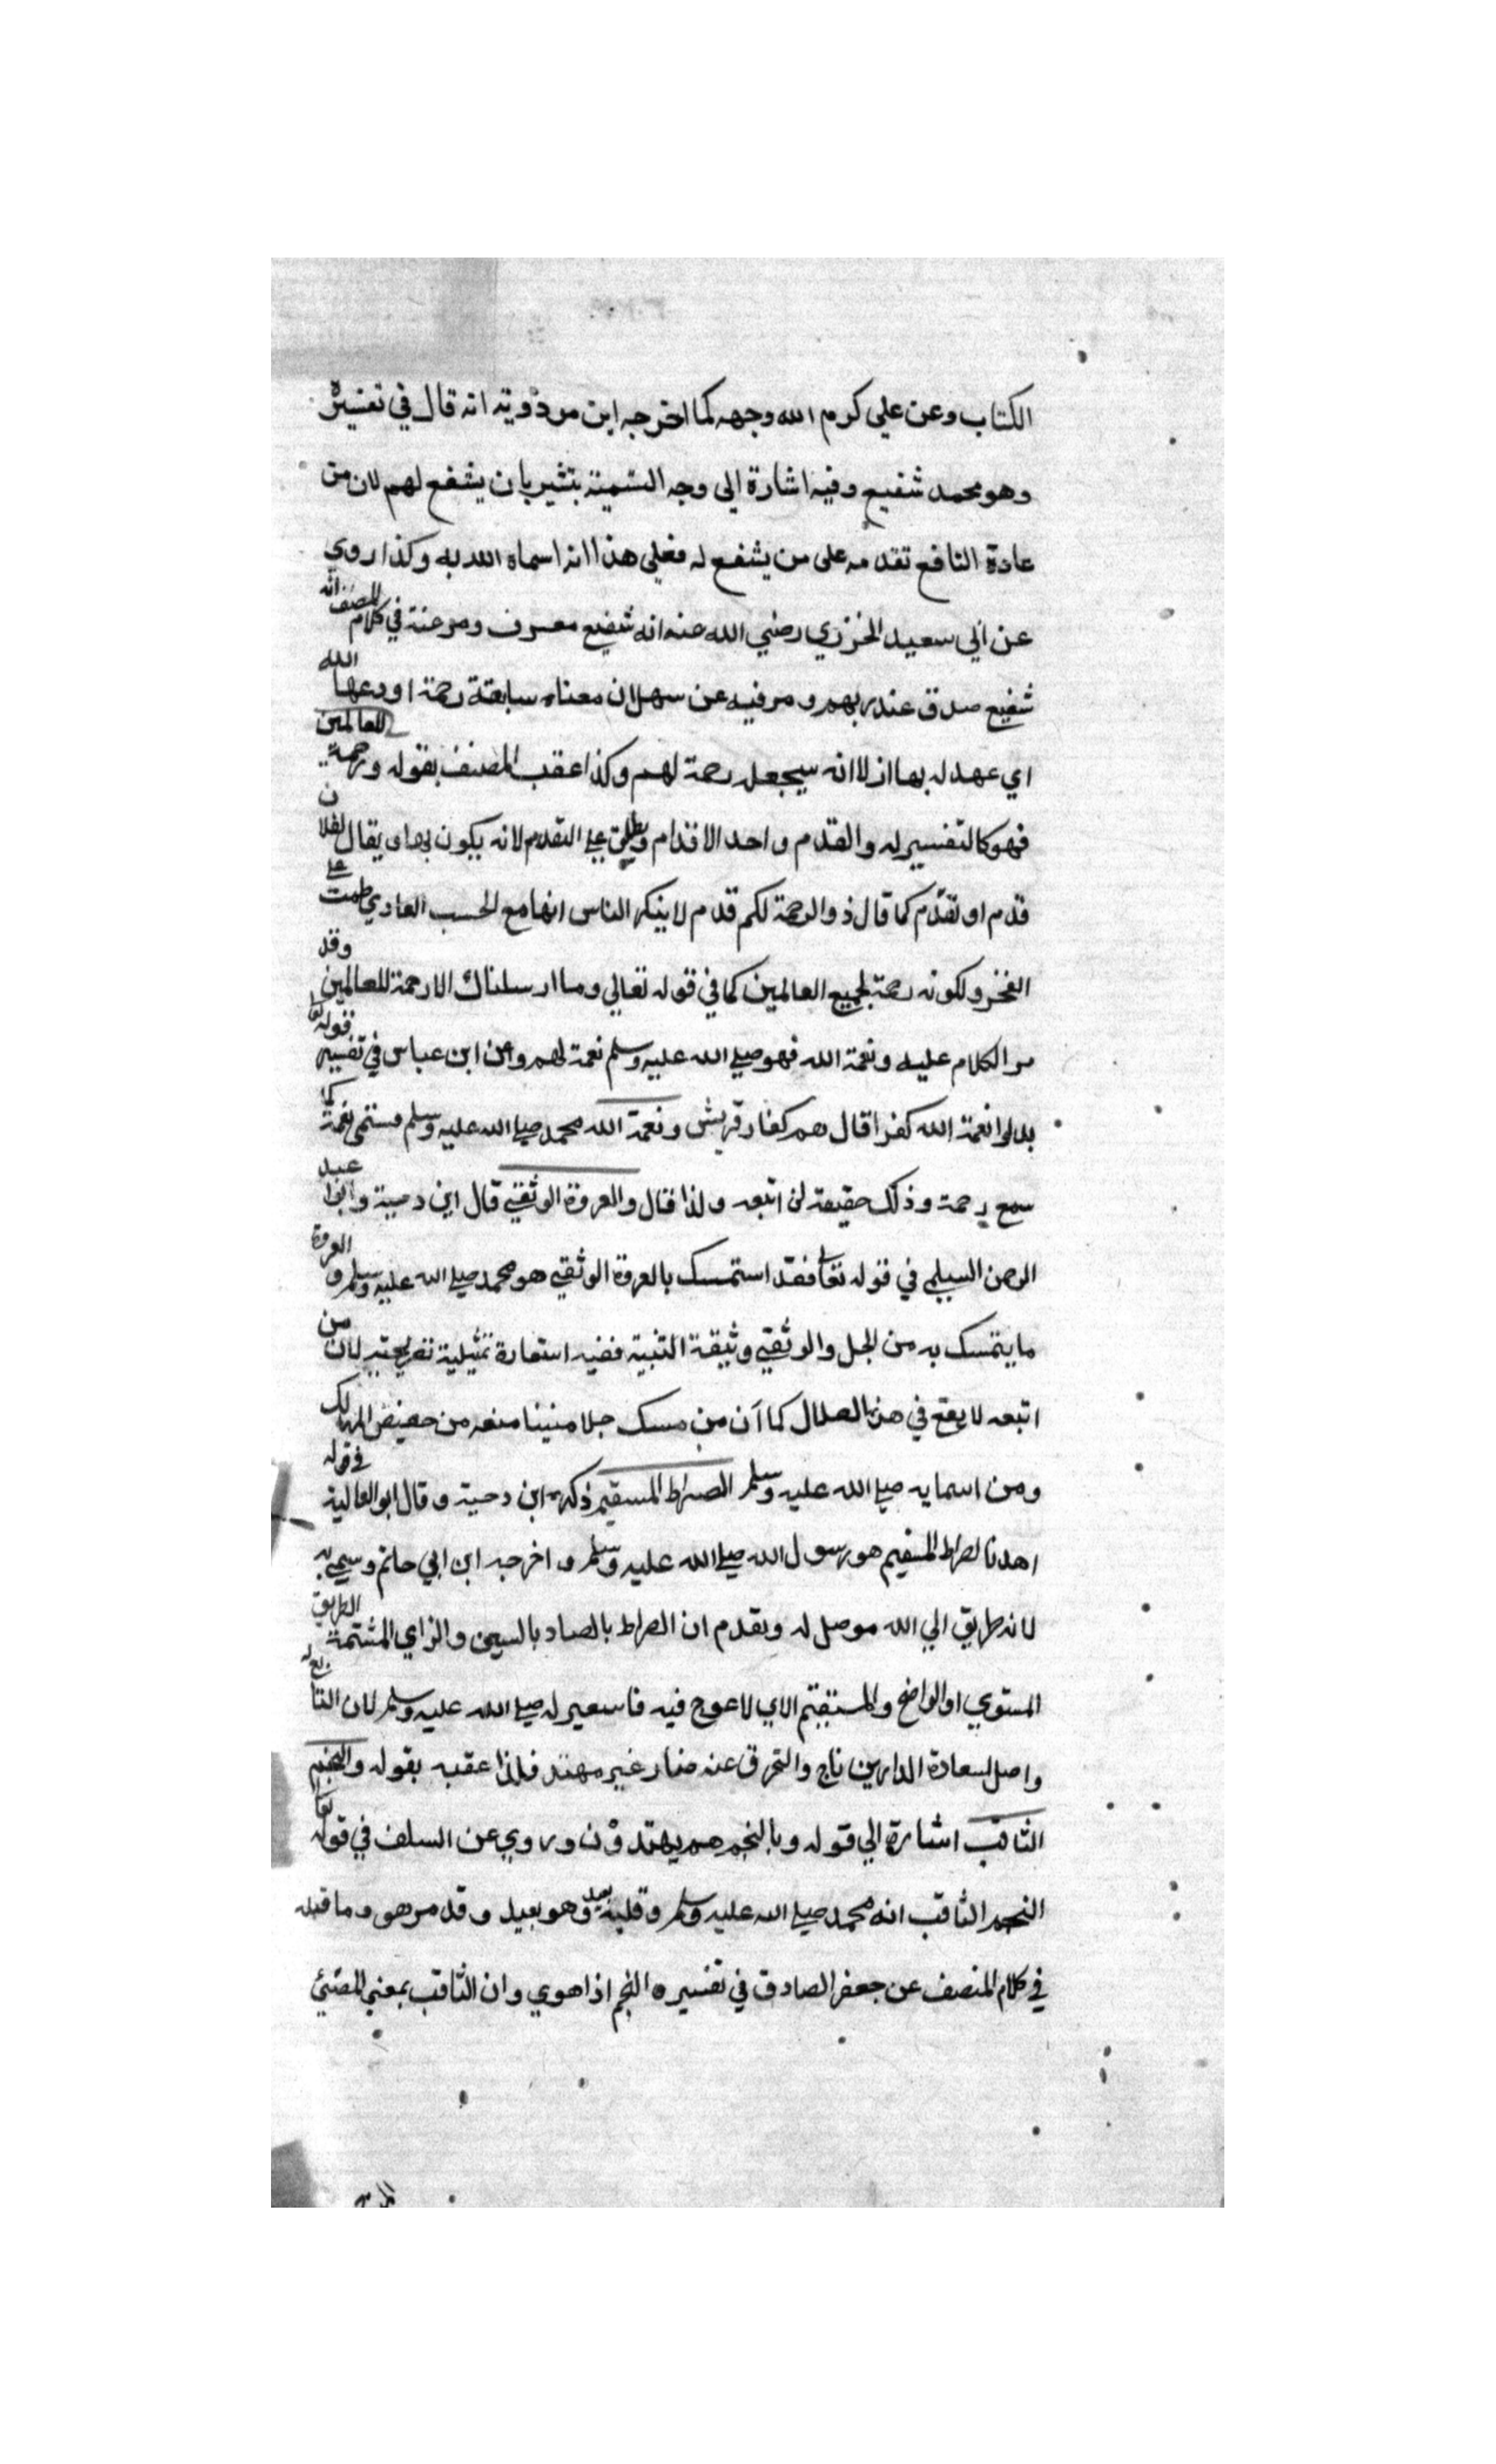 الكتاب وعن علي كرم الله وجهه كما اخرجه ابن مردويه انه قال في تفسيره
وهو محمد شفيع وفيه اشارة الي وجه التسمية بتشير بان يشفع لهم لان من
عادة الشافع تقدمه على من يشفع له فعلي هذا انه اسماه الله به وكذا روي
عن ابي سعيد الخزري رضي الله عنه انه شفيع معرف ومرعنة في كلام المصنف انه
شفيع صدق عند ربهم ومر فيه عن سهل ان معناه سابقة رحمة اودعها الله
اي عهد له بها ازلا انه سيجعله رحمة لهم وكذا عقب المصنف بقوله ورحمة للعالمين
فهو كالتفسير له والقدم واحد الاقدام ويطلق علي التقدم لانه يكون بها اي يقال لفلان
قدم او تقدم كما قال ذو الرحمة لكم قدم لا ينكر الناس انها مع الحسب العادي طمت علي
الفخر ولكونه رحمة لجميع العالمين كما في قوله تعالي وما ارسلناك الا رحمة للعالمين وقد
مر الكلام عليه ونعمة الله فهو صلي الله عليه وسلم نعمة لهم وعن ابن عباس في تفسير قوله تعا
بدلوا نعمة الله كفرا قال هم كفار قريش ونعمة الله محمد صلي الله عليه وسلم فسمي نعمة كما
سمع رحمة وذلك حقيقة لن اتبعه ولذا قال والعروة الوثقي قال ابن دحية وابوا عبد
الرحمن السيلمي في قوله تعا فقد استمسك بالعروة الوثقي هو محمد صلي الله عليه وسلم و العروة
ما يتمسك به من الحبل والوثقي وثيقة التنية ففيه استعارة تمثيلية تصريحتيه لان من
اتبعه لا يقع في هذه الضلال كما ان من مسك حبلا متينا منعه من حضيض المهالك
ومن اسمايه صلي الله عليه وسلم الصراط المستقيم ذكره ابن دحية وقال ابو العالية في قوله
اهدنا لصراط المستقيم هو رسول الله صلي الله عليه وسلم و اخرجه ابن ابي حاتم وسمي به
لانه طريق الي الله موصل له وتقدم ان الصراط بالصاد بالسين والزاي المشتمة الطريق
المستوي او الواضح والمستقيم الاي لا عوج فيه فاستعير له صلي الله عليه وسلم لان التا بع له
واصل لسعادة الدارين ناج والتحرق عنه ضار غير مهتد فلذا عقبه بقوله والنجم
الثاقب اشارة الي قوله وبالنجم هم يهتدون وروي عن السلف في قوله تعا
النجم الثاقب انه محمد صلي الله عليه وسلم وقلبه بعيد وهو بعيد وقد مر هو وما قبله
في كلام المنصف عن جعفر الصادق في تفسيره النجم اذا هوي وان الثاقب بمعني المضئ